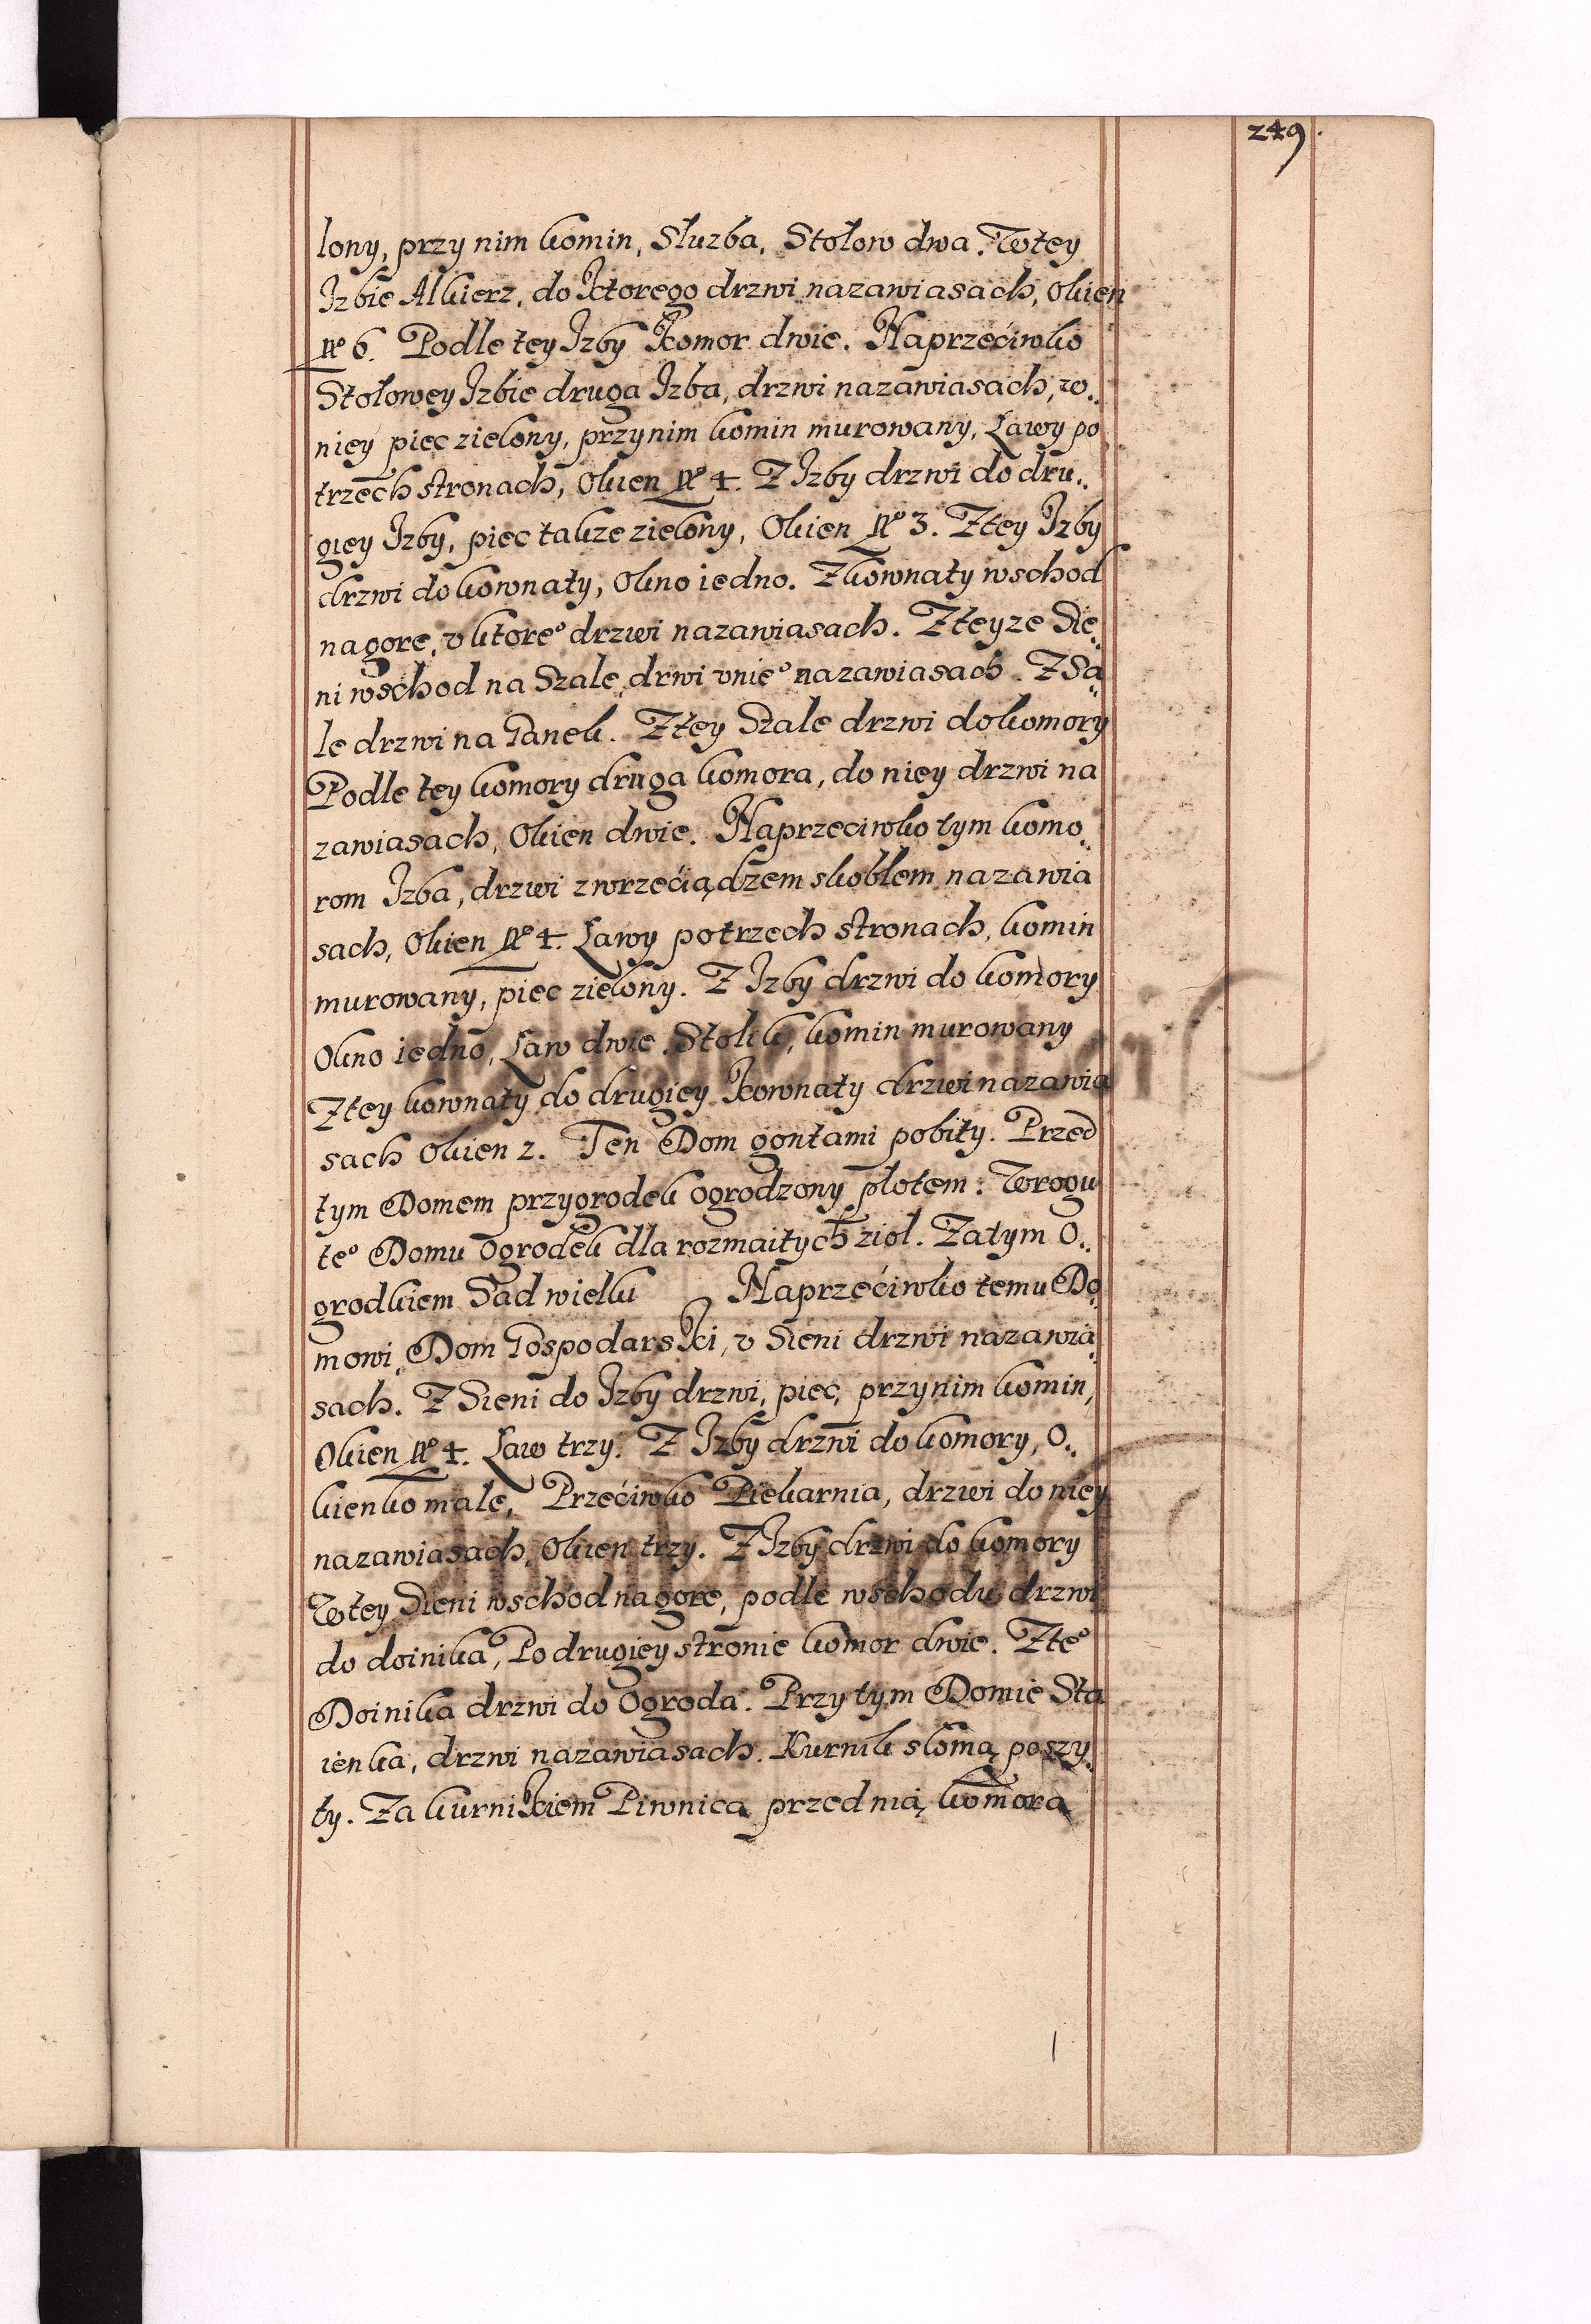 249.
lony, przy nim komin, Słuzba, Stołow dwa. W tey
Izbie Alkierz, do ktorego drzwi na zawiasach, Okien
No 6. Podle tey Izby Komor dwie. Naprzećiwko
Stołowey Izbie druga Izba, drzwi na zawiasach, w„
niey piec zielony, przy nim komin murowany, Ławy po
trzech stronach, Okien No 4. Z Izby drzwi do dru„
giey Izby, piec takze zielony, Okien No 3. Z tey Izby
drzwi do kownaty, Okno iedno. Z kownaty wschod
na gore, v ktoreo drzwi na zawiasach. Z teyze Sie„
ni wschod na Szale, drwi v nieo na zawiasach. Z Sa„
le drzwi na Ganek. Z tey Szale drzwi do komory
Podle tey komory druga komora, do niey drzwi na
zawiasach, Okien dwie. Naprzeciwko tym komo„
rom Izba, drzwi z wrzeciądzem skoblem na zawia
sach, Okien No 4. Ławy po trzech stronach, komin
murowany, piec zielony. Z Izby drzwi do komory
Okno iedno, Ław dwie. Stolik, komin murowany
Z tey kownaty do drugiey Kownaty drzwi na zawia
sach Okien 2. Ten Dom gontami pobity. Przed
tym Domem przygrodek ogrodzony płotem. W rogu
teo Domu Ogrodek dla rozmaitych zioł. Za tym O„
grodkiem Sad wielku Naprzećiwko temu Do„
mowi, Dom Gospodarski, v Sieni drzwi na zawia„
sach. Z Sieni do Izby drzwi, piec, przy nim komin,
Okien No 4. Ław trzy. Z Izby drzwi do komory, O„
kienko małe, Przećiwko Piekarnia, drzwi do niey
na zawiasach, Okien trzy. Z Izby drzwi do komory
W tey Sieni wschod na gore, podle wschodu drzwi
do doinika, Po drugiey stronie komor dwie. Z teo
Doinika drzwi do Ogroda. Przy tym Domie Sta
ienka, drzwi na zawiasach. Kurnik słomą poszy„
ty. Za kurnikiem Piwnica przed nią komora